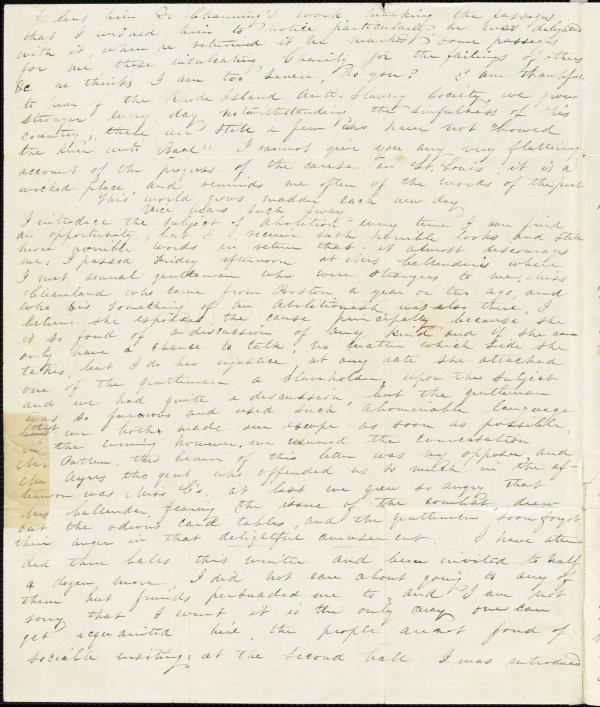 I lent him Dr Channing's work, marking the passages
that I wished him to notice particularly he was delighted
with it when he returned it he marked some passages
for me those inculcating Charity for the failings of others
&c he thinks I am too severe, do you? I am thankful
to hear of the Rhode Island Anti-Slavery Society, we grow
stronger every day notwithstanding the sinfulness of this
country, there are still a few "who have not bowed
the knee unto Baal" I cannot give you any very flattering
account of the progress of the cause in St. Louis, it is a
wicked place, and reminds me often of the words of the poet
"This world grows madder each new day
Vice bears such sway
I introduce the subject of Abolition every time I can find
an opportunity, but I receive such horrible looks and still
more horrible words in return that it almost discourages
me; I passed Friday afternoon at Mrs Callender's where
I met several gentleman who were strangers to me, Miss
Cleaveland who came from Boston a year or two ago, and
who is something of an Abolitionist was also there, I
believe she espouses the cause principally because she
is so fond of a discussion of any kind and if she can
only have a chance to talk, no matter which side she
takes, but I do her injustice, at any rate she attacked
one of the gentleman a Slaveholder, upon the subject
and we had quite a discussion, but the gentleman
was so furious and used such abominable language
that we both made our escape as soon as possible,
in the evening however, we resumed the conversation
Mr Patten, the bearer of this letter was my opposer, and
Mr Ayres the gent, who offended us so much in the af-
ternoon was Miss C's, at last we grew so angry that
Mrs Callender, fearing the issue of the combat, drew
out the odious card tables, and the gentlemen soon forgot
their anger in that delightful amusement. I have atten
ded three balls this winter and been invited to half
a dozen more, I did not care about going to any of
them but friends persuaded me to, and I am not
sorry that I went it is the only way one can
get acquainted here, the people are not fond of
sociable visiting; at the second ball I was introduced